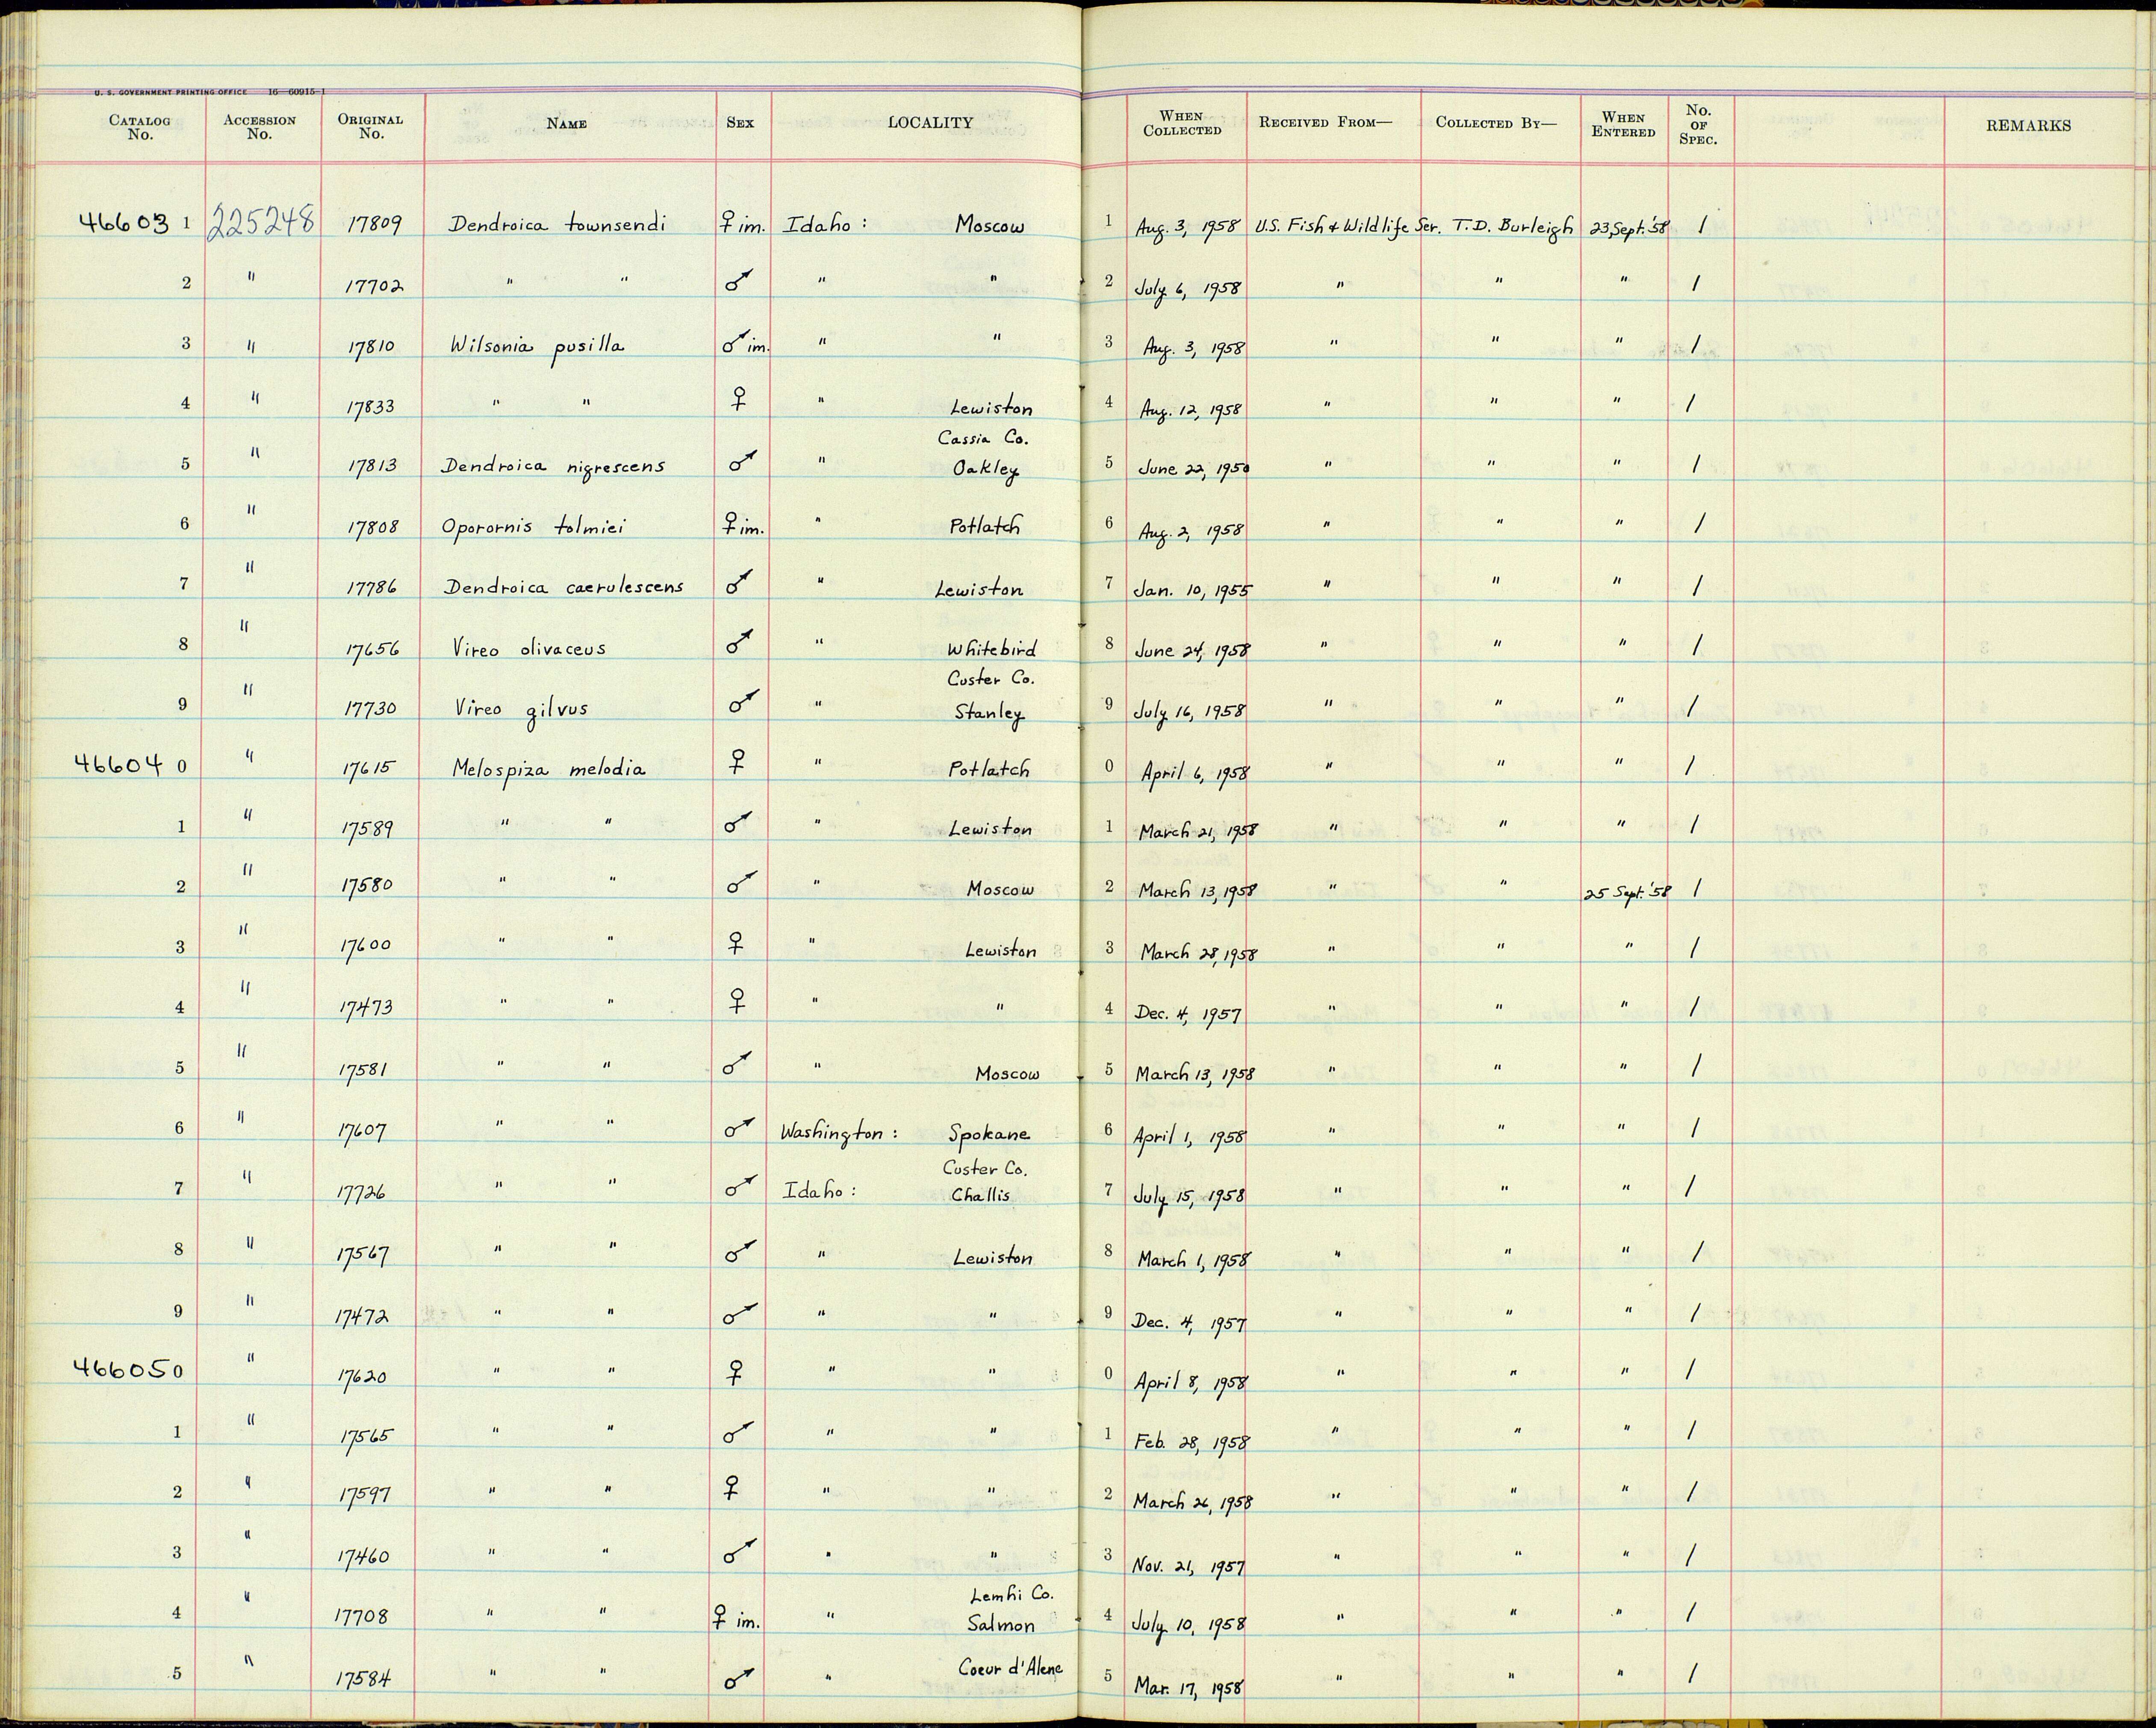 U. S. GOVERNMENT PRINTING OFFICE 16—60915-1
CATALOG No. ACCESSION No. ORIGINAL No. NAME SEX LOCALITY WHEN COLLECTED RECEIVED FROM— COLLECTED BY— WHEN ENTERED No. OF SPEC. REMARKS
46603 1 225248 17809 Dendroica townsendi ♀ im. Idaho : Moscow 1 Aug. 3, 1958 U.S. Fish & Wildlife Ser. T. D. Burleigh 23, Sept. '58 1
2 " 17702 " " ♂ " " 2 July 6, 1958 " " " 1
3 " 17810 Wilsonia pusilla ♂ im. " " 3 Aug. 3, 1958 " " " 1
4 " 17833 " " ♀ " Lewiston 4 Aug. 12, 1958 " " " 1
Cassia Co.
5 " 17813 Dendroica nigrescens ♂ " Oakley 5 June 22, 1950 " " " 1
6 " 17808 Oporornis tolmiei ♀ im. " Potlatch 6 Aug. 2, 1958 " " " 1
7 " 17786 Dendroica caerulescens ♂ " Lewiston 7 Jan. 10, 1955 " " " 1
8 " 17656 Vireo olivaceus ♂ " Whitebird 8 June 24, 1958 " " " 1
Custer Co.
9 " 17730 Vireo gilvus ♂ " Stanley 9 July 16, 1958 " " " 1
46604 0 " 17615 Melospiza melodia ♀ " Potlatch 0 April 6, 1958 " " " 1
1 " 17589 " " ♂ " Lewiston 1 March 21, 1958 " " " 1
2 " 17580 " " ♂ " Moscow 2 March 13, 1958 " " 25 Sept. '58 1
3 " 17600 " " ♀ " Lewiston 3 March 28, 1958 " " " 1
4 " 17473 " " ♀ " " 4 Dec. 4, 1957 " " " 1
5 " 17581 " " ♂ " Moscow 5 March 13, 1958 " " " 1
6 " 17607 " " ♂ Washington : Spokane 6 April 1, 1958 " " " 1
Custer Co.
7 " 17726 " " ♂ Idaho : Challis 7 July 15, 1958 " " " 1
8 " 17567 " " ♂ " Lewiston 8 March 1, 1958 " " " 1
9 " 17472 " " ♂ " " 9 Dec. 4, 1957 " " " 1
46605 0 " 17620 " " ♀ " " 0 April 8, 1958 " " " 1
1 " 17565 " " ♂ " " 1 Feb. 28, 1958 " " " 1
2 " 17597 " " ♀ " " 2 March 26, 1958 " " " 1
3 " 17460 " " ♂ " " 3 Nov. 21, 1957 " " " 1
Lemhi Co.
4 " 17708 " " ♀ im. " Salmon 4 July 10, 1958 " " " 1
5 " 17584 " " ♂ " Coeur d'Alene 5 Mar. 17, 1958 " " " 1